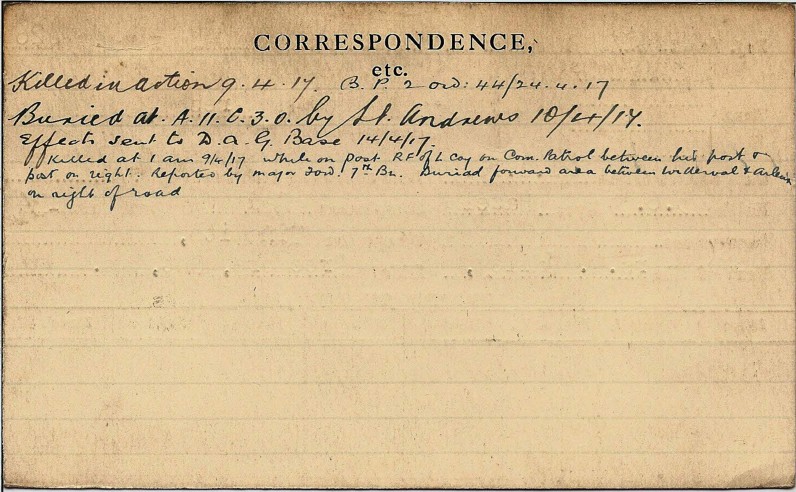 CORRESPONDENCE,
etc.
Killed in action 9.4.17. B.P. 2 ord: 44/24.4.17
Buried at. A.11.C.3.0. by Lt. Andrews 10/4/17.
Effects sent to D.A.G. Base 14/4/17.
Killed at 1 am 9/4/17 while on post RF of L Coy on Com. Patrol between his post &
post on right. Reported by Major 7th Bn. Buried forward area between &
on right of road